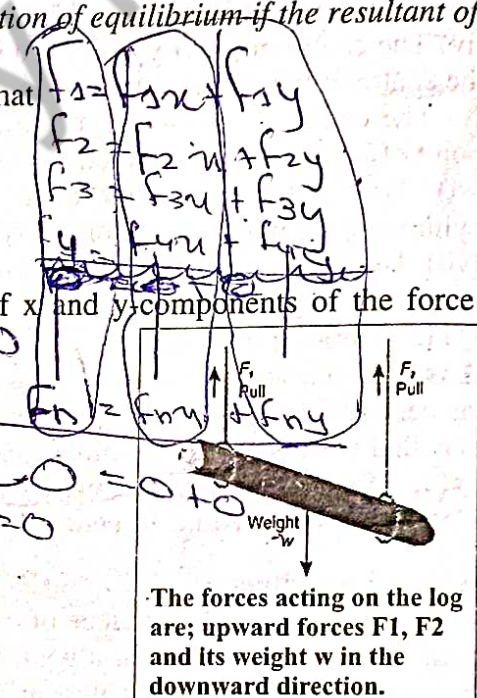 tion of equilibrium if the resultant of
hat f1 = f1x + f1y
f2 = f2x + f2y
f3 = f3x + f3y
fy = f4x + f4y
f x and y-components of the force
0
F1
Pull
F2
Pull
fn = fnx + fny
0 = 0 + 0
=0
Weight
w
The forces acting on the log
are; upward forces F1, F2
and its weight w in the
downward direction.